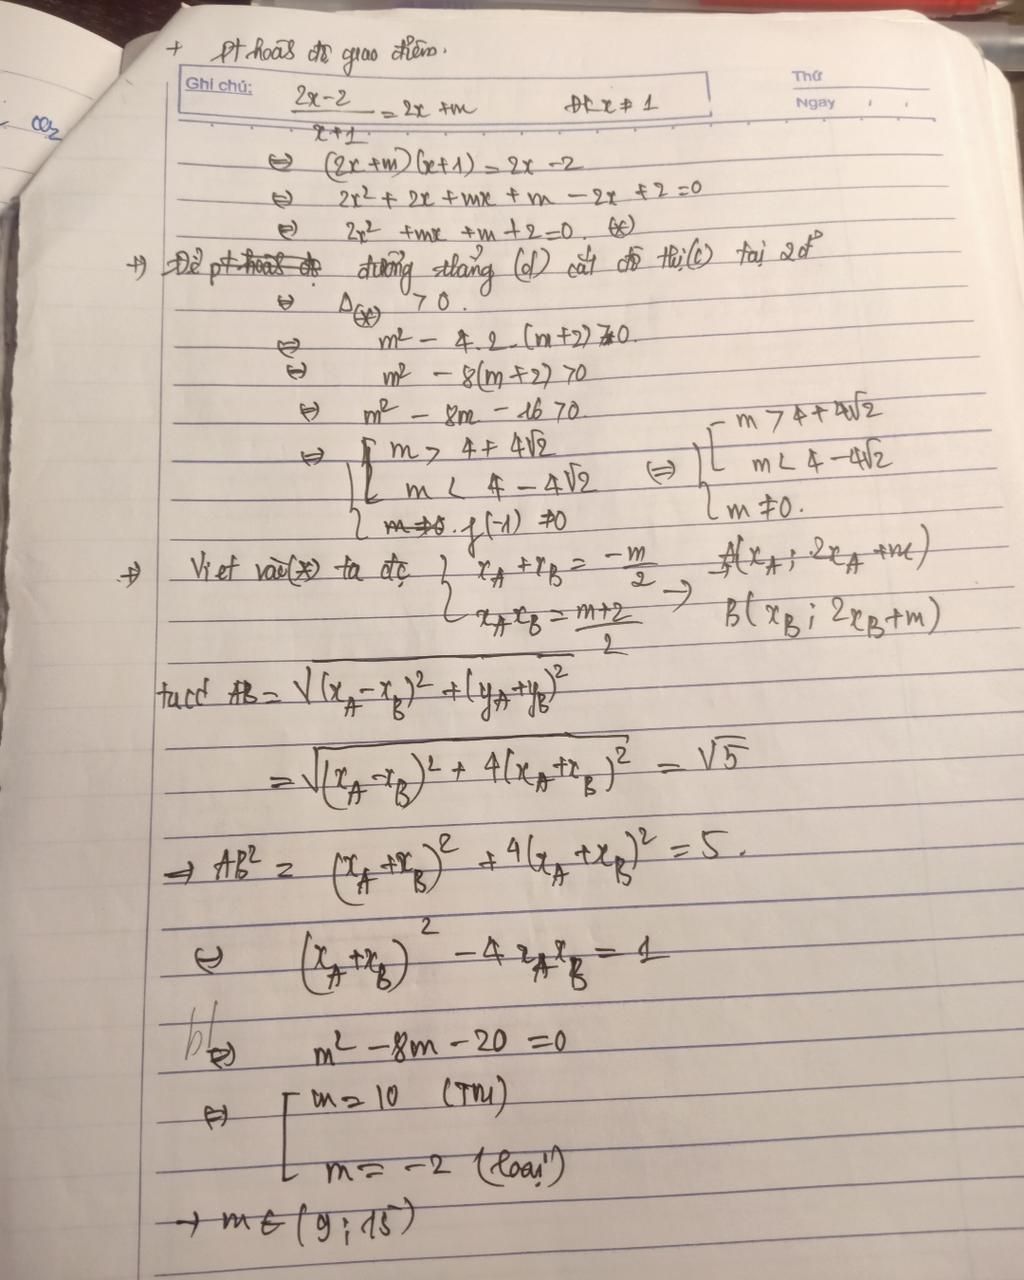 + pt hoàh độ giao điểm.
Ghi chú:
Thứ
Ngày
2x-2/x+1 = 2x +m ĐK x ≠ 1
⇔ (2x+m)(x+1) = 2x -2
⇔ 2x² + 2x + mx + m - 2x + 2 = 0
⇔ 2x² + mx + m + 2 = 0. (*)
+) Để pt hoàh độ đường thẳng (d) cắt đồ thị (C) tại 2đ°
⇔ Δ(*) > 0.
⇔ m² - 4.2.(m+2) > 0.
⇔ m² - 8(m+2) > 0
⇔ m² - 8m - 16 > 0
⇔ { [ m > 4 + 4√2 ; m < 4 - 4√2 ; m ≠ 0. f(-1) ≠ 0 ⇔ { [ m > 4 + 4√2 ; m < 4 - 4√2 ; m ≠ 0.
+) Viet vào (*) ta đc { x_A + x_B = -m/2 ; x_A x_B = m+2/2 → A(x_A ; 2x_A + m)
B(x_B ; 2x_B + m)
ta có AB = √(x_A - x_B)² + (y_A + y_B)²
= √(x_A - x_B)² + 4(x_A + x_B)² = √5
→ AB² = (x_A + x_B)² + 4(x_A + x_B)² = 5.
⇔ (x_A + x_B)² - 4 x_A x_B = 1
⇔ m² - 8m - 20 = 0
⇔ [ m = 10 (TM)
m = -2 (loại)
→ m ∈ (9 ; 15)